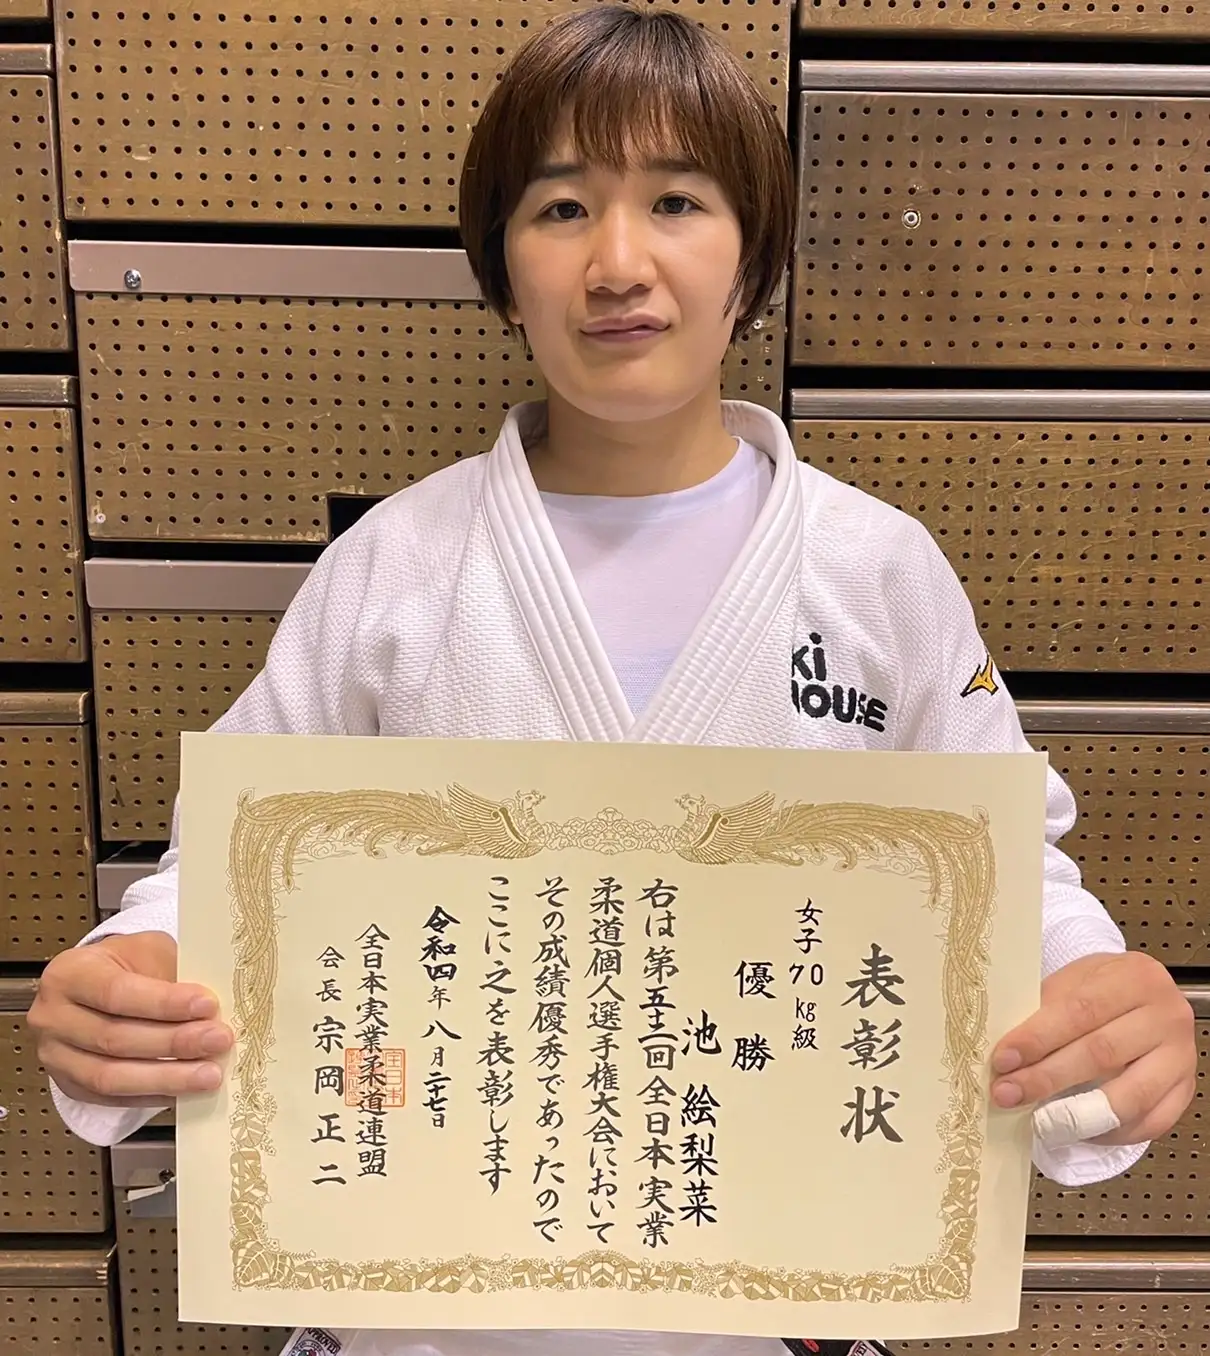 表彰状
女子70kg級
優勝
池 絵梨菜
右は第五十二回全日本実業
柔道個人選手権大会において
その成績優秀であったので
ここに之を表彰します
令和四年八月二十七日
全日本実業柔道連盟
会長 宗岡正二
Ki
HOUSE